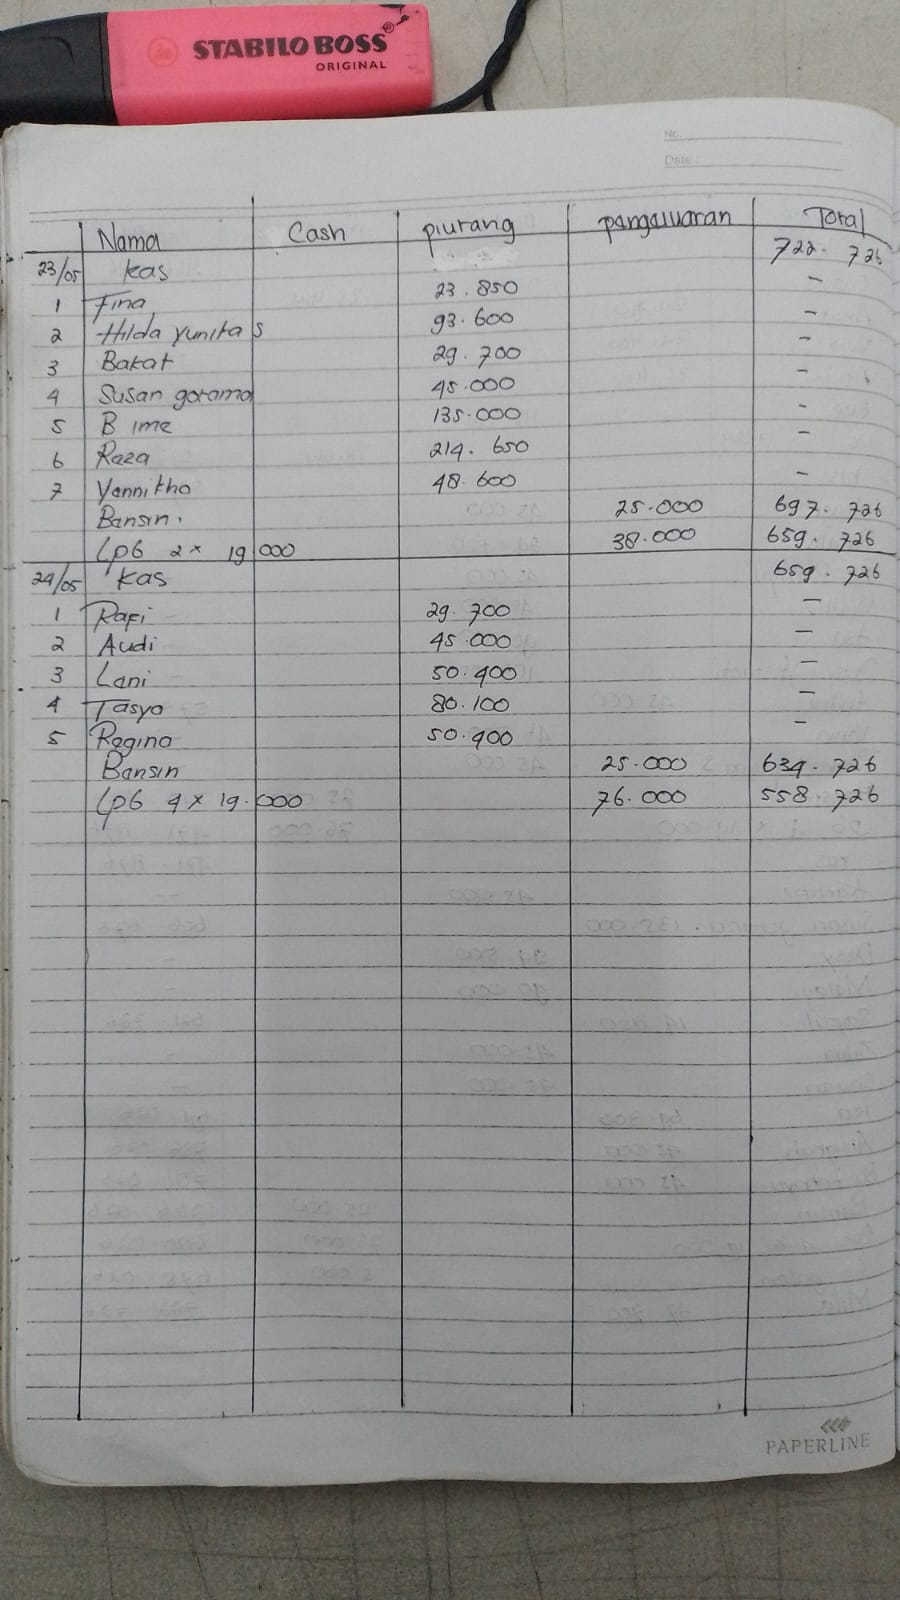 STABILO BOSS
ORIGINAL
No.
Date:
Nama Cash piutang pangaluaran Total
23/05 kas 722.726
1 Fina 23.850 -
2 Hilda Yunita s 93.600 -
3 Bakat 29.700 -
4 Susan gotama 45.000 -
5 Bima 135.000 -
6 Raza 214.650 -
7 Yannitho 48.600 -
Bansin. 25.000 697.726
LpG 2x 19.000 38.000 659.726
24/05 kas 659.726
1 Rafi 29.700 -
2 Audi 45.000 -
3 Lani 50.400 -
4 Tasya 80.100 -
5 Regina 50.400 -
Bansin 25.000 634.726
LpG 4x 19.000 76.000 558.726
PAPERLINE